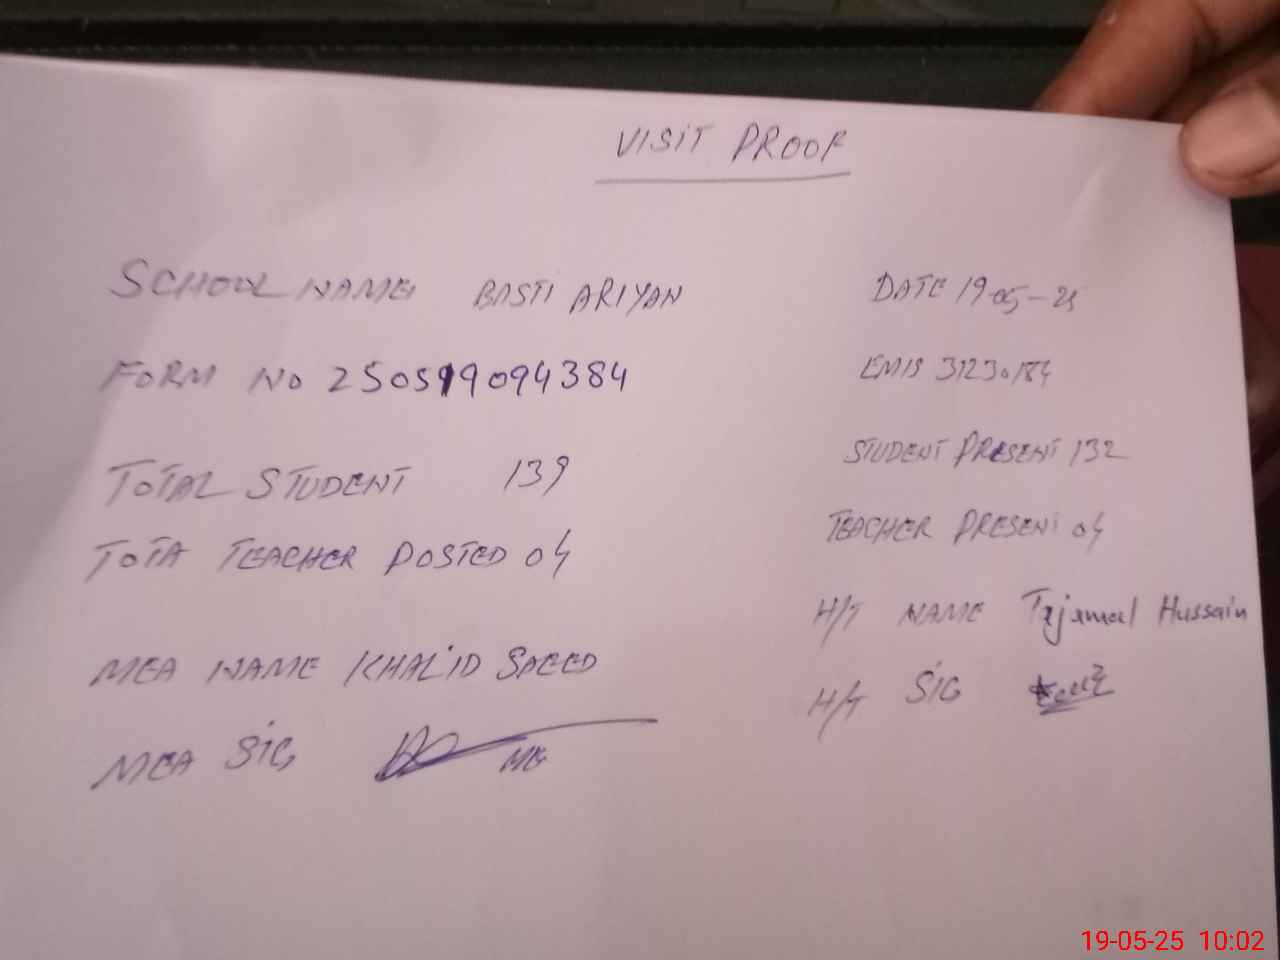 VISIT PROOF
SCHOOL NAME BASTI ARIYAN
DATE 19-05-25
FORM NO 250519094384
EMIS 31230184
TOTAL STUDENT 139
STUDENT PRESENT 132
TOTA TEACHER POSTED 04
TEACHER PRESENT 04
H/T NAME Tajamal Hussain
MEA NAME KHALID SAEED
H/T SIG
MEA SIG
19-05-25 10:02